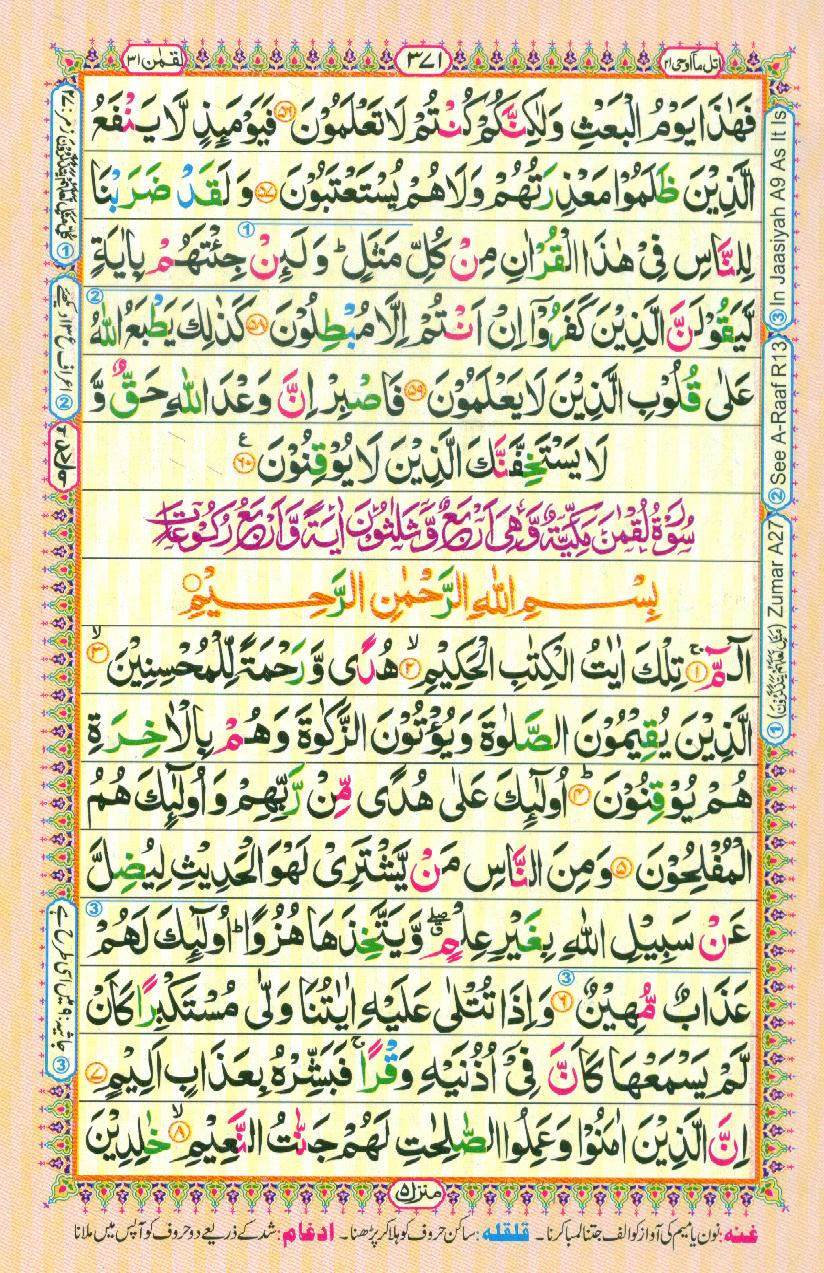 اتل ماۤاوحی ۲۱
۳۷۱
لقمٰن ۳۱
فَهٰذَا يَوْمُ الْبَعْثِ وَلٰكِنَّكُمْ كُنْتُمْ لَا تَعْلَمُوْنَ ﴿۵۶﴾ فَيَوْمَىِٕذٍ لَّا يَنْفَعُ
الَّذِيْنَ ظَلَمُوْا مَعْذِرَتُهُمْ وَلَا هُمْ يُسْتَعْتَبُوْنَ ﴿۵۷﴾ وَلَقَدْ ضَرَبْنَا
لِلنَّاسِ فِىْ هٰذَا الْقُرْاٰنِ مِنْ كُلِّ مَثَلٍ ؕ وَلَىِٕنْ ① جِئْتَهُمْ بِاٰيَةٍ
لَّيَقُوْلَنَّ الَّذِيْنَ كَفَرُوْۤا اِنْ اَنْتُمْ اِلَّا مُبْطِلُوْنَ ﴿۵۸﴾ كَذٰلِكَ يَطْبَعُ اللّٰهُ ②
عَلٰى قُلُوْبِ الَّذِيْنَ لَا يَعْلَمُوْنَ ﴿۵۹﴾ فَاصْبِرْ اِنَّ وَعْدَ اللّٰهِ حَقٌّ وَّ
لَا يَسْتَخِفَّنَّكَ الَّذِيْنَ لَا يُوْقِنُوْنَ ﴿۶۰﴾ ع
سُوْرَةُ لُقْمٰنَ مَكِّيَّةٌ وَّهِىَ اَرْبَعٌ وَّثَلٰثُوْنَ اٰيَةً وَّاَرْبَعُ رُكُوْعَاتٍ
بِسْمِ اللّٰهِ الرَّحْمٰنِ الرَّحِيْمِ
الٓمّٓ ﴿۱﴾ تِلْكَ اٰيٰتُ الْكِتٰبِ الْحَكِيْمِ ﴿۲﴾ هُدًى وَّرَحْمَةً لِّلْمُحْسِنِيْنَ ﴿۳﴾
الَّذِيْنَ يُقِيْمُوْنَ الصَّلٰوةَ وَيُؤْتُوْنَ الزَّكٰوةَ وَهُمْ بِالْاٰخِرَةِ
هُمْ يُوْقِنُوْنَ ﴿۴﴾ اُولٰٓىِٕكَ عَلٰى هُدًى مِّنْ رَّبِّهِمْ وَاُولٰٓىِٕكَ هُمُ
الْمُفْلِحُوْنَ ﴿۵﴾ وَمِنَ النَّاسِ مَنْ يَّشْتَرِىْ لَهْوَ الْحَدِيْثِ لِيُضِلَّ
عَنْ سَبِيْلِ اللّٰهِ بِغَيْرِ عِلْمٍ وَّيَتَّخِذَهَا هُزُوًا ؕ اُولٰٓىِٕكَ لَهُمْ ③
عَذَابٌ مُّهِيْنٌ ﴿۶﴾ ③ وَاِذَا تُتْلٰى عَلَيْهِ اٰيٰتُنَا وَلّٰى مُسْتَكْبِرًا كَاَنْ
لَّمْ يَسْمَعْهَا كَاَنَّ فِىْۤ اُذُنَيْهِ وَقْرًا ۚ فَبَشِّرْهُ بِعَذَابٍ اَلِيْمٍ ﴿۷﴾
اِنَّ الَّذِيْنَ اٰمَنُوْا وَعَمِلُوا الصّٰلِحٰتِ لَهُمْ جَنّٰتُ النَّعِيْمِ ﴿۸﴾ خٰلِدِيْنَ
① Zumar A27 ② See A-Raaf R13 ③ In Jaasiyah A9 As It Is
منزل ۵
غنہ: نون یا میم کی آواز کو الف جتنا لمبا کرنا۔ قلقلہ: ساکن حروف کو ہلا کر پڑھنا۔ ادغام: شد کے ذریعے دو حروف کو آپس میں ملانا